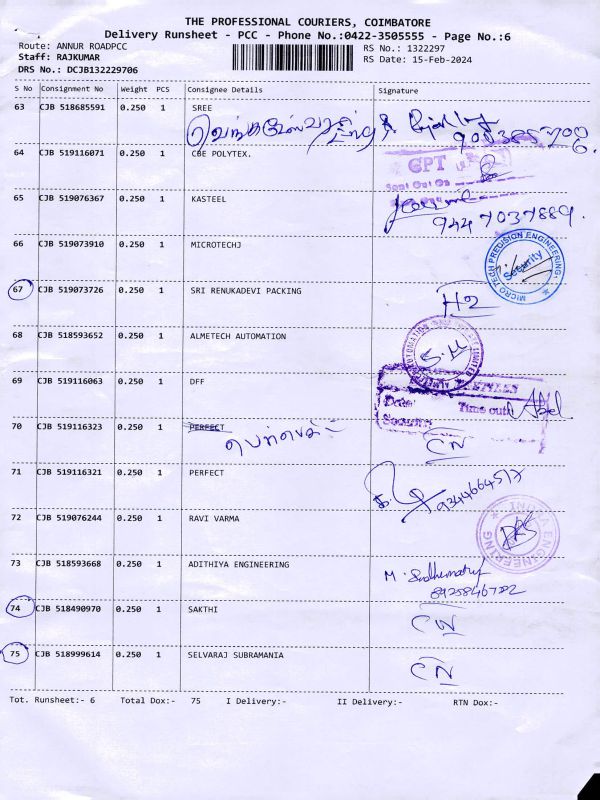 THE PROFESSIONAL COURIERS, COIMBATORE
Delivery Runsheet - PCC - Phone No.:0422-3505555 - Page No.:6
Route: ANNUR ROADPCC RS No.: 1322297
Staff: RAJKUMAR RS Date: 15-Feb-2024
DRS No.: DCJB132229706
S No Consignment No Weight PCS Consignee Details Signature
63 CJB 518685591 0.250 1 SREE
64 CJB 519116071 0.250 1 CBE POLYTEX.
GPT
Sent Out On
65 CJB 519076367 0.250 1 KASTEEL
9447037889.
66 CJB 519073910 0.250 1 MICROTECHJ
MICRO TECH PRECISION ENGINEERING
Security
67 CJB 519073726 0.250 1 SRI RENUKADEVI PACKING
H2
68 CJB 518593652 0.250 1 ALMETECH AUTOMATION
S.M
69 CJB 519116063 0.250 1 DFF
Date
Time out
Abel
70 CJB 519116323 0.250 1 PERFECT
CN
71 CJB 519116321 0.250 1 PERFECT
9344664517
72 CJB 519076244 0.250 1 RAVI VARMA
ENGINEERING
73 CJB 518593668 0.250 1 ADITHIYA ENGINEERING
M.
74 CJB 518490970 0.250 1 SAKTHI
CN
75 CJB 518999614 0.250 1 SELVARAJ SUBRAMANIA
CN
Tot. Runsheet:- 6 Total Dox:- 75 I Delivery:- II Delivery:- RTN Dox:-